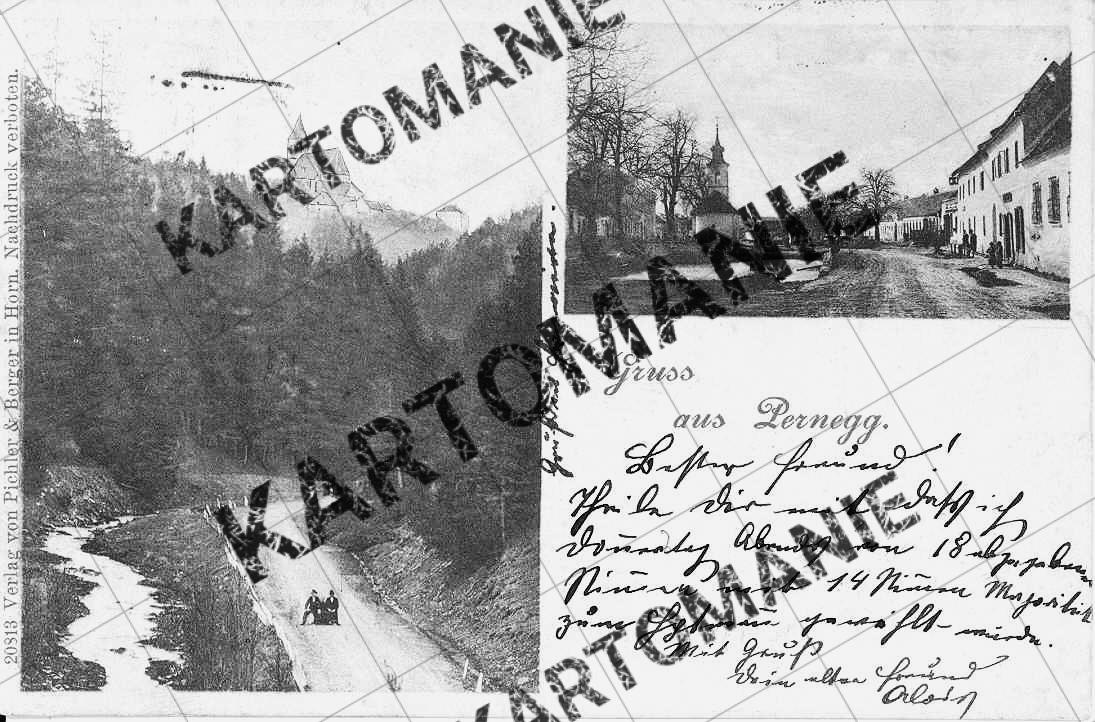 20813 Verlag von Pichler & Berger in Horn. Nachdruck verboten.
KARTOMANIE
KARTOMANIE
KARTOMANIE
Gruss
aus Pernegg.
Bester Freund!
Theile Dir mit, daß ich
Donnerstag Abends von 18 abgegebenen
Stimmen mit 14 Stimmen Majorität
zum Hptmann gewählt wurde.
Mit Gruß
Dein alter Freund
Alois